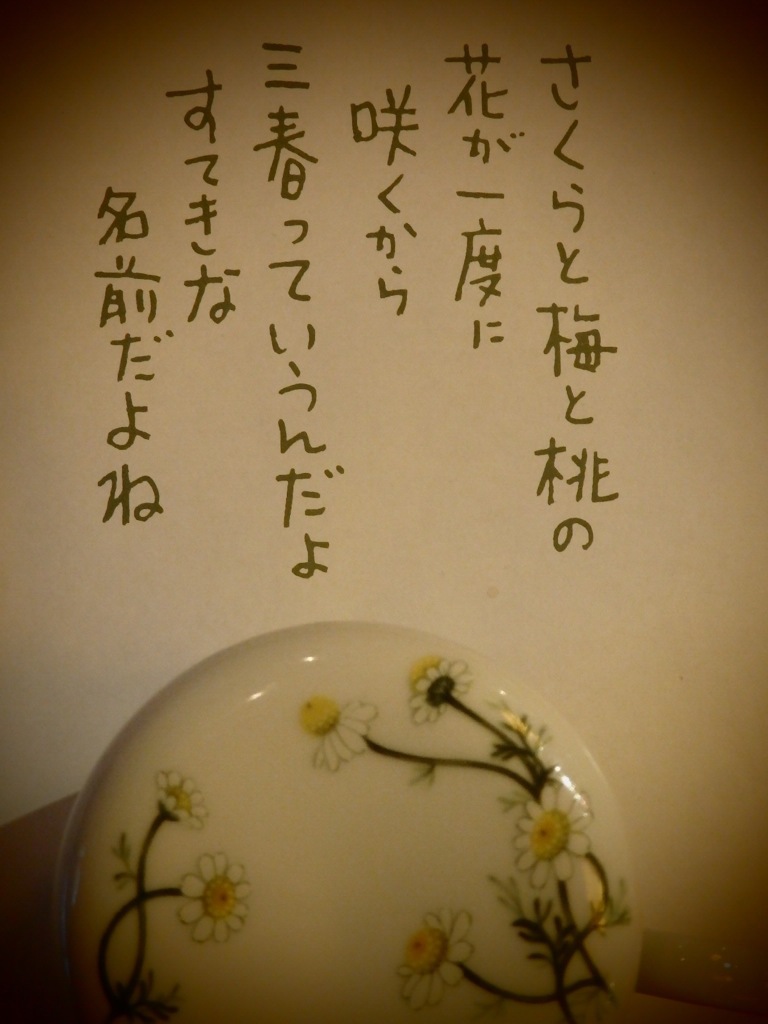 さくらと梅と桃の
花が一度に
咲くから
三春っていうんだよ
すてきな
名前だよね